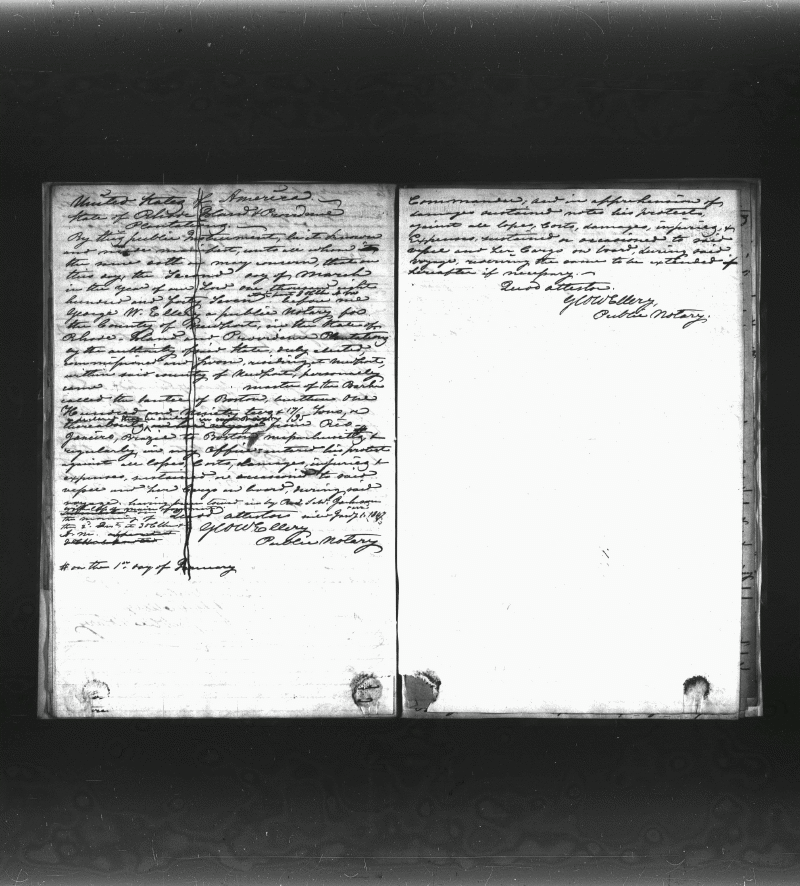 United States of America
State of Rhode Island & Providence
Plantations
By this public Instrument, be it known
and manifest, unto all whom
the same doth or may concern, that on
this day the Second day of March
in the Year of our Lord one thousand eight
hundred and Forty Seven before me
George W. Ellery a public Notary for
the County of Newport, in the State of
Rhode-Island and Providence Plantations
by the authority of said State, duly elected
commissioned and sworn, residing in Newport,
within said County of Newport, personally
came master of the Barque
called the of Boston, burthen One
Hundred and Ninety two & 17/ Tons,
from Rio
Janeiro, Brazil to Boston Massachusetts, &
regularly, in my Office entered his protest
against all losses, Costs, damages, injuries, &
expenses, sustained or occasioned to said
vessel and her Cargo on board, during said
voyage. having been
the morning of Quod attestor
G W Ellery
A.M.
Public Notary
# on the 1st day of January
Commander, and in apprehension of
damages sustained notes his protests,
against all losses, Costs, damages, injuries, &
Expenses, sustained or occasioned to said
vessel and her Cargo on board, during said
voyage, reserving the same to be extended
hereafter if necessary.
Quod attestor.
G W Ellery,
Public Notary.